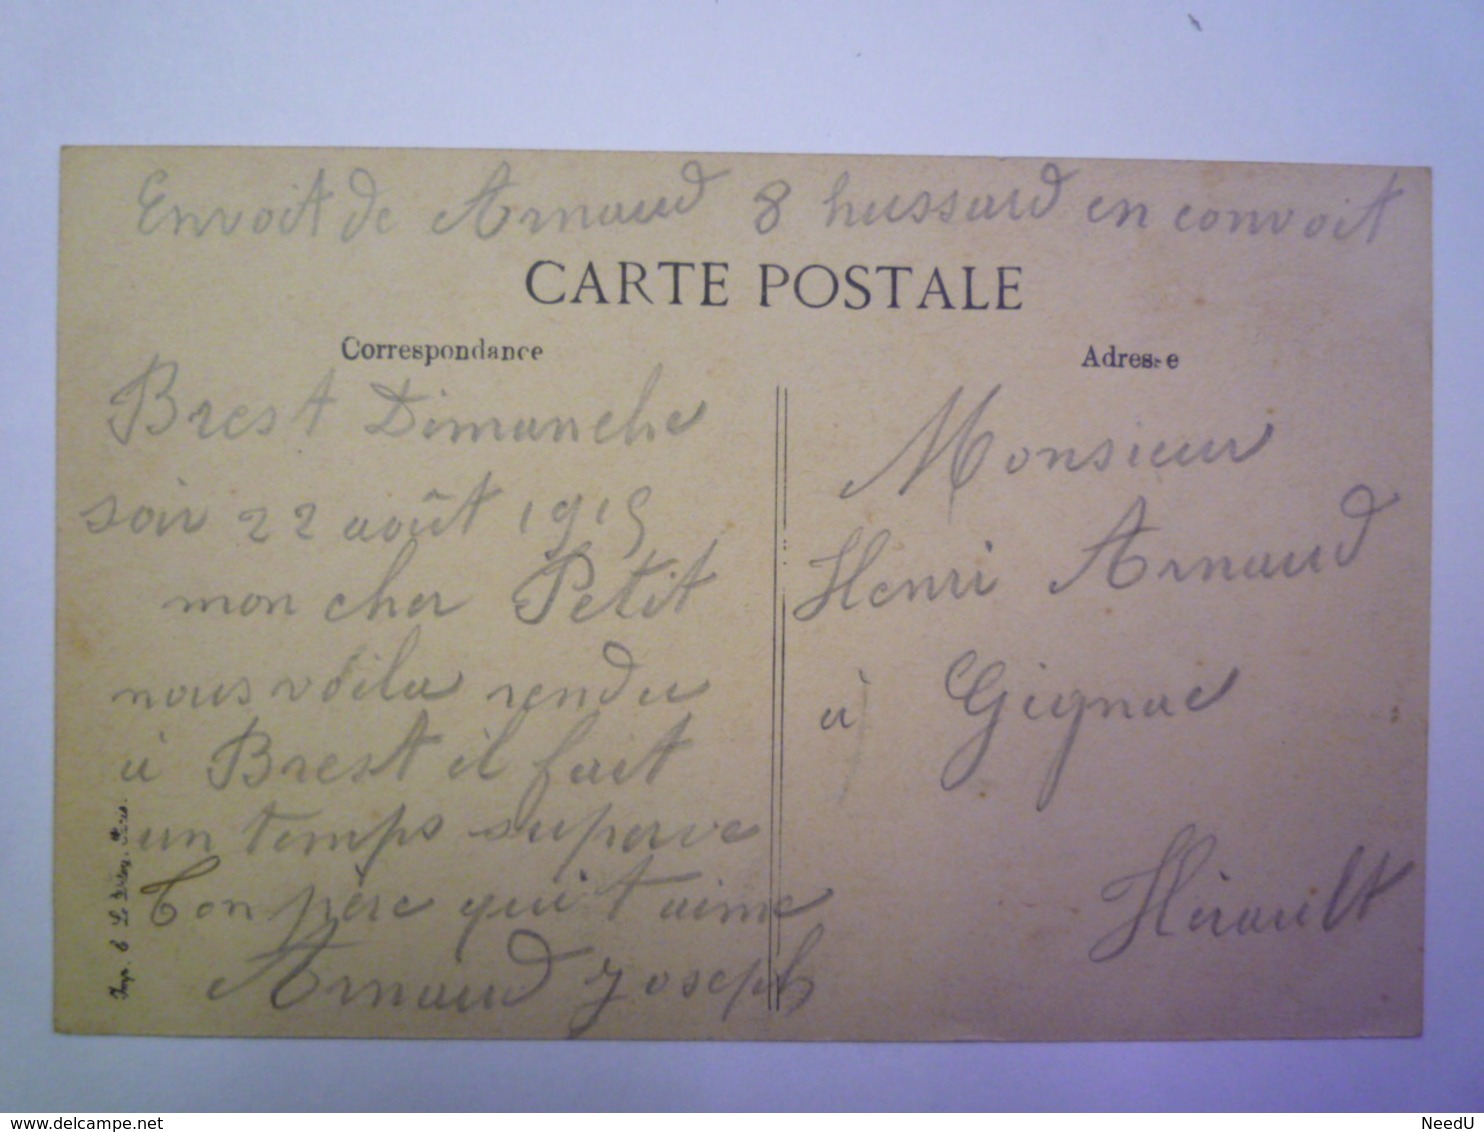 Envoit de Arnaud 8 hussard en convoit
CARTE POSTALE
Correspondance
Brest Dimanche
soir 22 août 1915
mon cher Petit
nous voila rendu
à Brest il fait
un temps superve
Ton père qui t'aime
Arnaud Joseph
Adresse
Monsieur
Henri Arnaud
à Gignac
Hérault
delcampe.net
NeedU